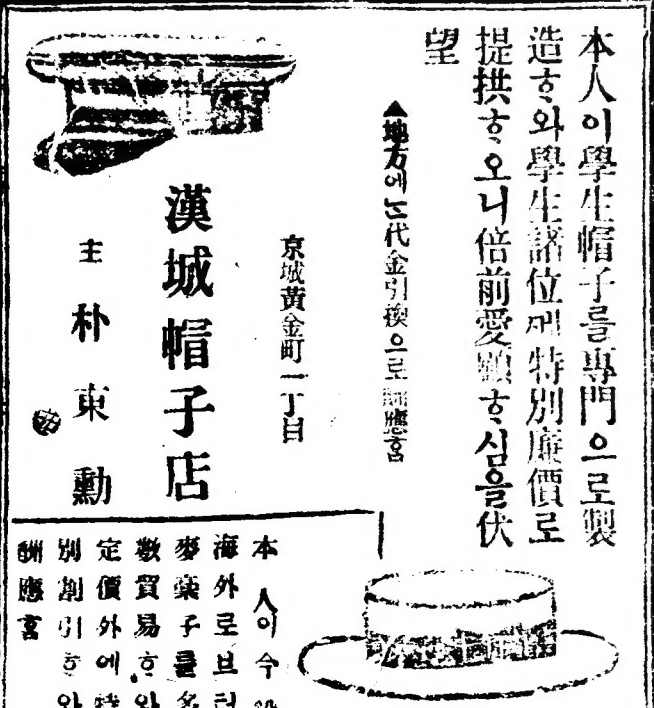 本人이學生帽子를專門으로製
造ᄒᆞ와學生諸位께特別廉價로
提拱ᄒᆞ오니倍前愛顧ᄒᆞ심을伏
望
▲地方에ᄂᆞᆫ代金引換으로酬應홈
京城黃金町一丁目
漢城帽子店
主 朴東勳
本人이今
海外로브터
麥藁子를多
數貿易ᄒᆞ와
定價外에特
別割引ᄒᆞ와
酬應홈